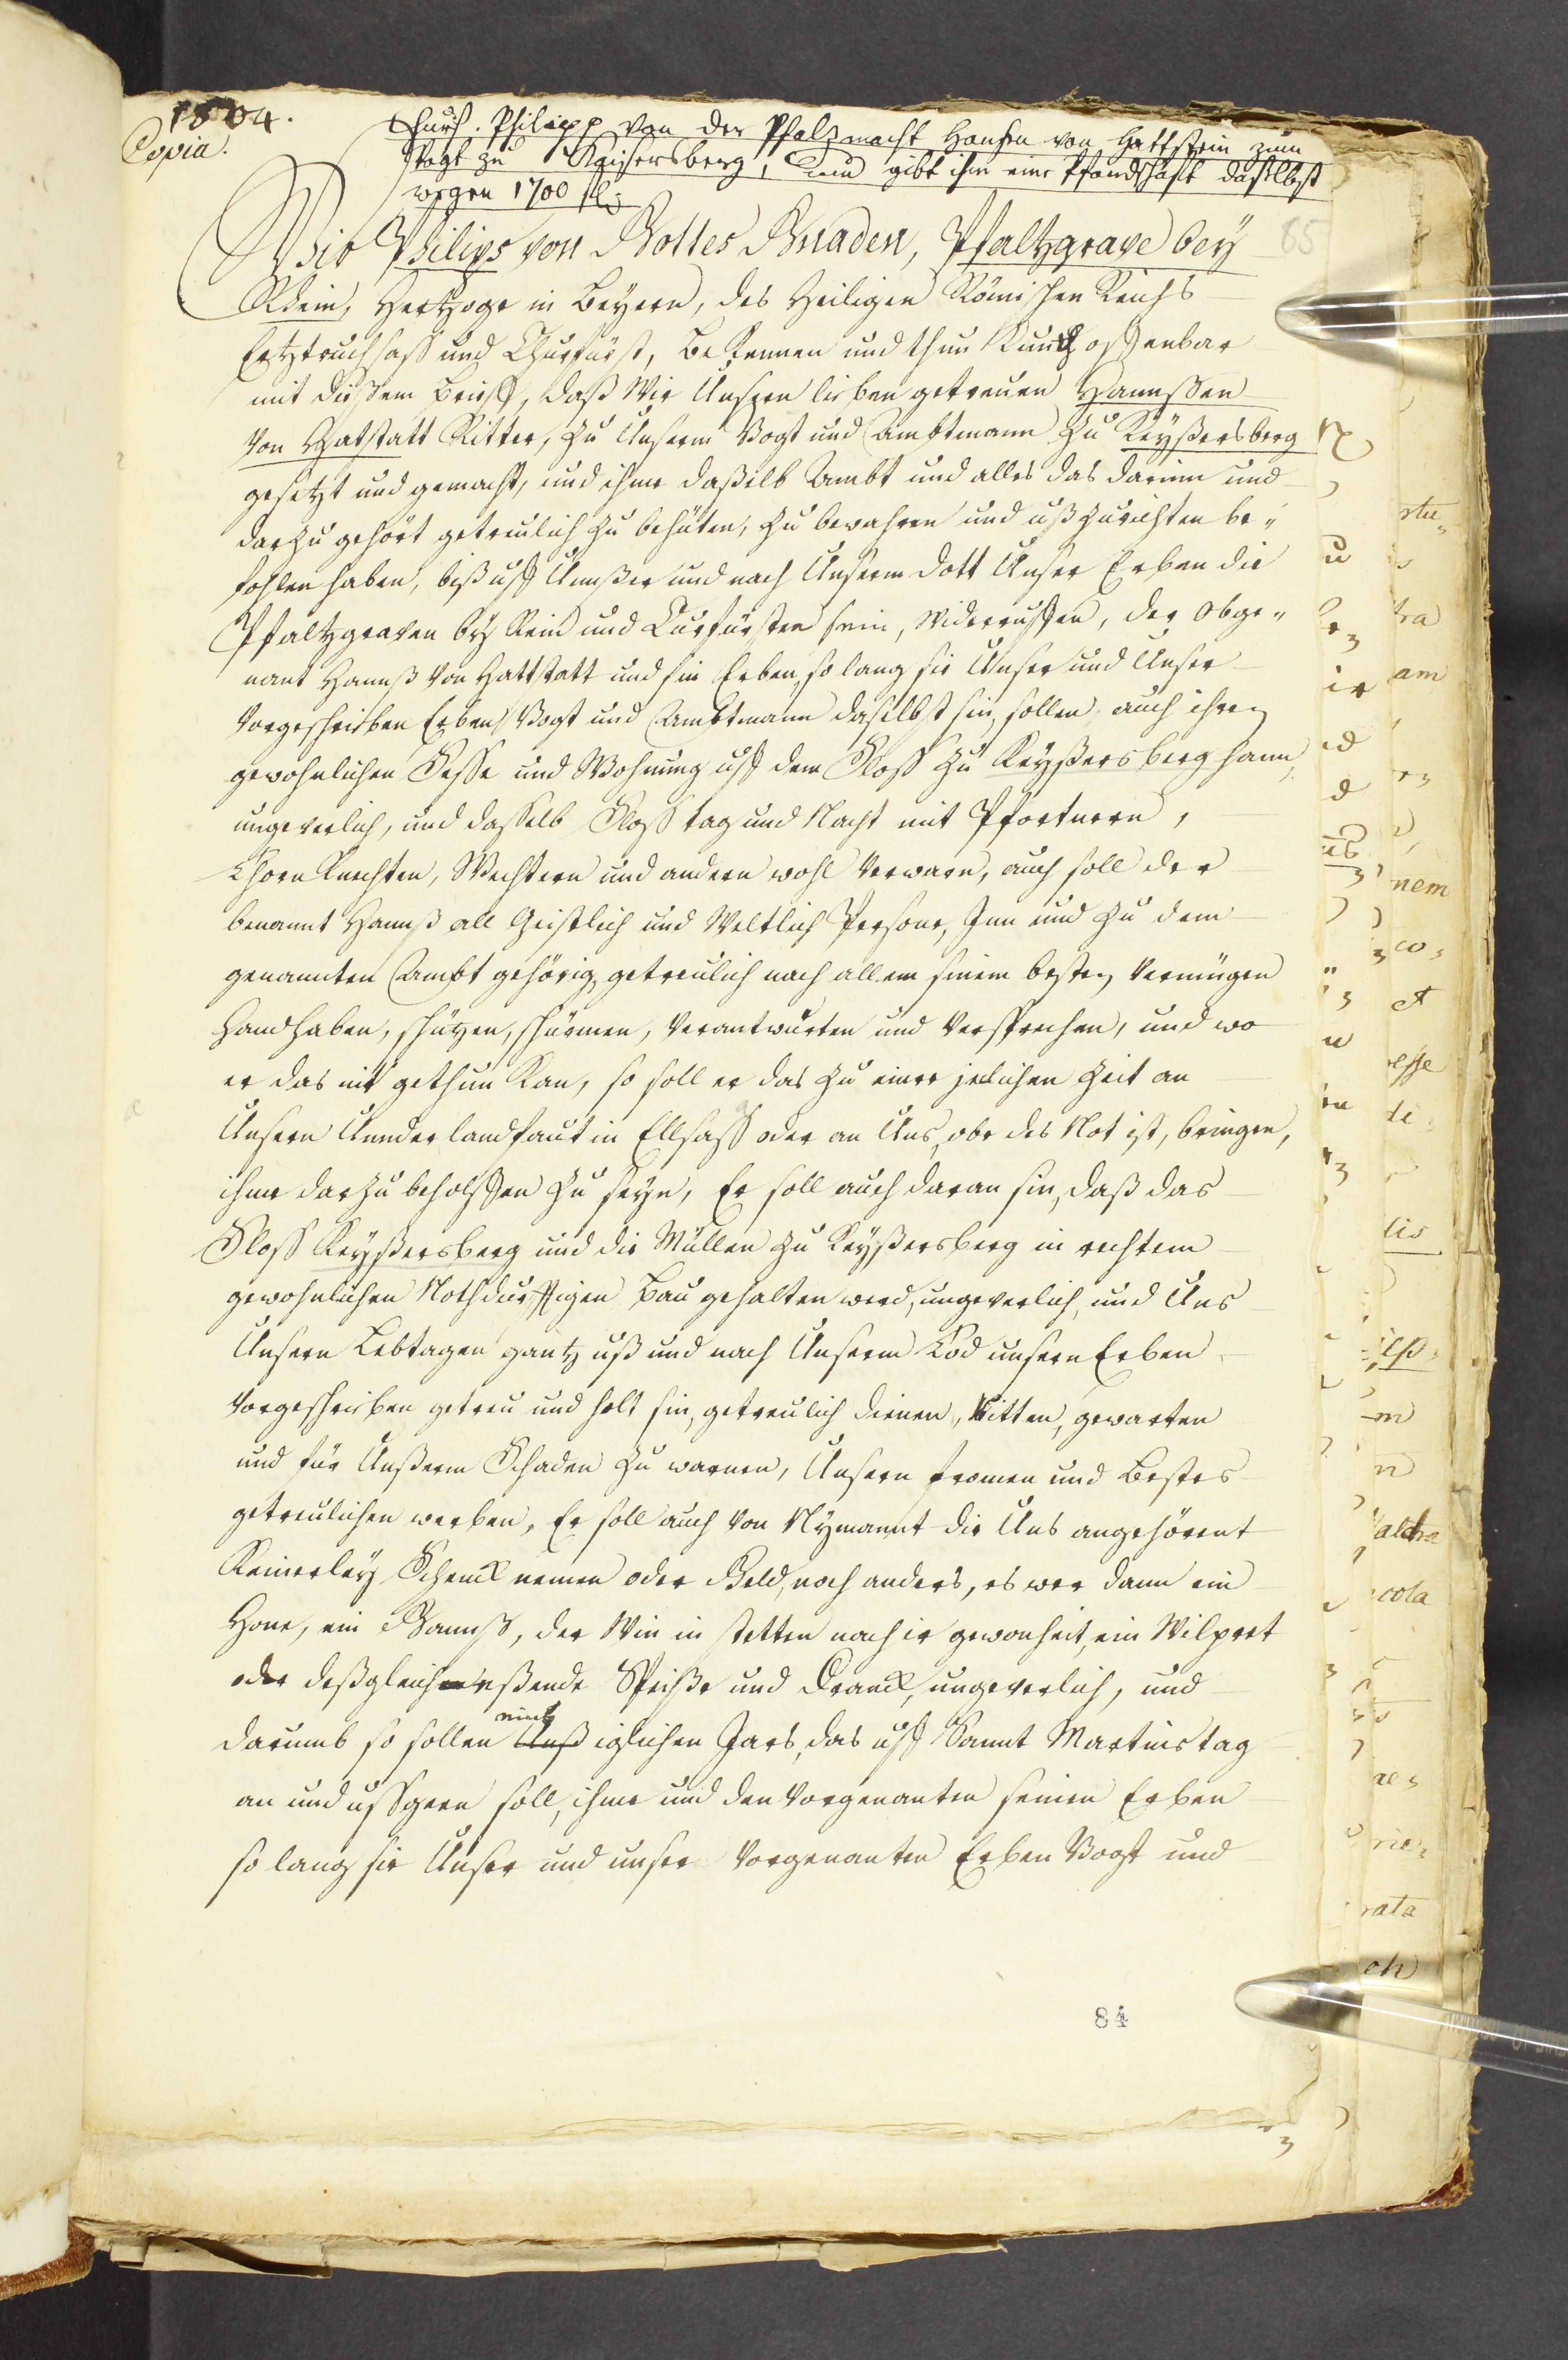 1504.
Copia.
Churf. Philipp von der Pfalz macht Hansen von Hattstein zum
Vogt zu Kaisersberg, und gibt ihm eine Pfandschaft daselbst
wegen 1700 fl.
65
Wir Philips von Gottes Gnaden, Pfaltzgrave bey
Rhein, Hertzoge in Beyern, des Heiligen Römischen Reichs
Ertztruchsass und Churfürst, Bekennen und thun Kundt offenbar
mit dießem brieff, daß Wir Unsern lieben getreuen Hannssen
von Hatstatt Ritter, zu Unserm Vogt und Ambtmann zu Keyßersberg
gesetzt und gemacht, und ihme daßelb Ambt und alles das darinn und
darzu gehört getreulich zu behüten, zu bewahren und ußzurichten be„
fohlen haben, biß uff Unnßer und nach Unserm dott Unser Erben die
Pfaltzgraven by Rein und Curfürsten sein, Widerruffen, der obge„
nant Hannß von Hattstatt und sin Erben, so lang sie Unser und Unser
vorgeschrieben Erben Vogt und Ambtmann daselbst sin, sollen auch ihren
gewohnlichen Sesse und Wohnung uff dem Sloss zu Keyßersberg hann,
ungeverlich, und dasselb Sloss tag und Nacht mit Pfortnern,
Thorn Knechten, Wechtern und andern wohl verwarn, auch soll der
benannt Hannß all Geistlich und Weltlich Persone, Inn und zu dem
genannten Ambt gehörig, getreulich nach allem sinem besten Vermügen
Handhaben, schüzen, schürmen, verantwurten und versprechen, und wo
er das nit gethun kan, so soll er das zu einer jedlichen Zeit an
Unsern Unnderlandfaut in Ellsass oder an Uns, obe des Not ist, bringen,
ihme darzu beholffen zu seyn, Er soll auch daran sin, daß das
Sloss Keyßersberg und die Müllen zu Keyßersberg in rechtem
gewohnlichen Nothdurfftigen Bau gehalten werd, ungeverlich, und Uns
Unsern Lebtagen gantz uß und nach Unserm Tod unsern Erben
vorgeschrieben getreu und holt sin, getreulich dienen, Ritten, gewarten
und für Unßerm Schaden zu warnen, Unsern fromen und Bestes
getreulichen werben, Er soll auch von Nymannt die Uns angehörent
Keinerley Schenck nemen oder Geld, noch anders, es wer dann ein
Hone, ein Gannß, der Win in stetten nach ir gewonheit, ein Wilpret
oder deßgleichen eßende Speiße und Dranck, ungeverlich, und
darumb so sollen iglichen Jars, das uff Sannt Martinstag
an und ussgeen soll, ihme und den vorgenanten seinen Erben
so lang sie Unser und unser vorgenanten Erben Vogt und
84